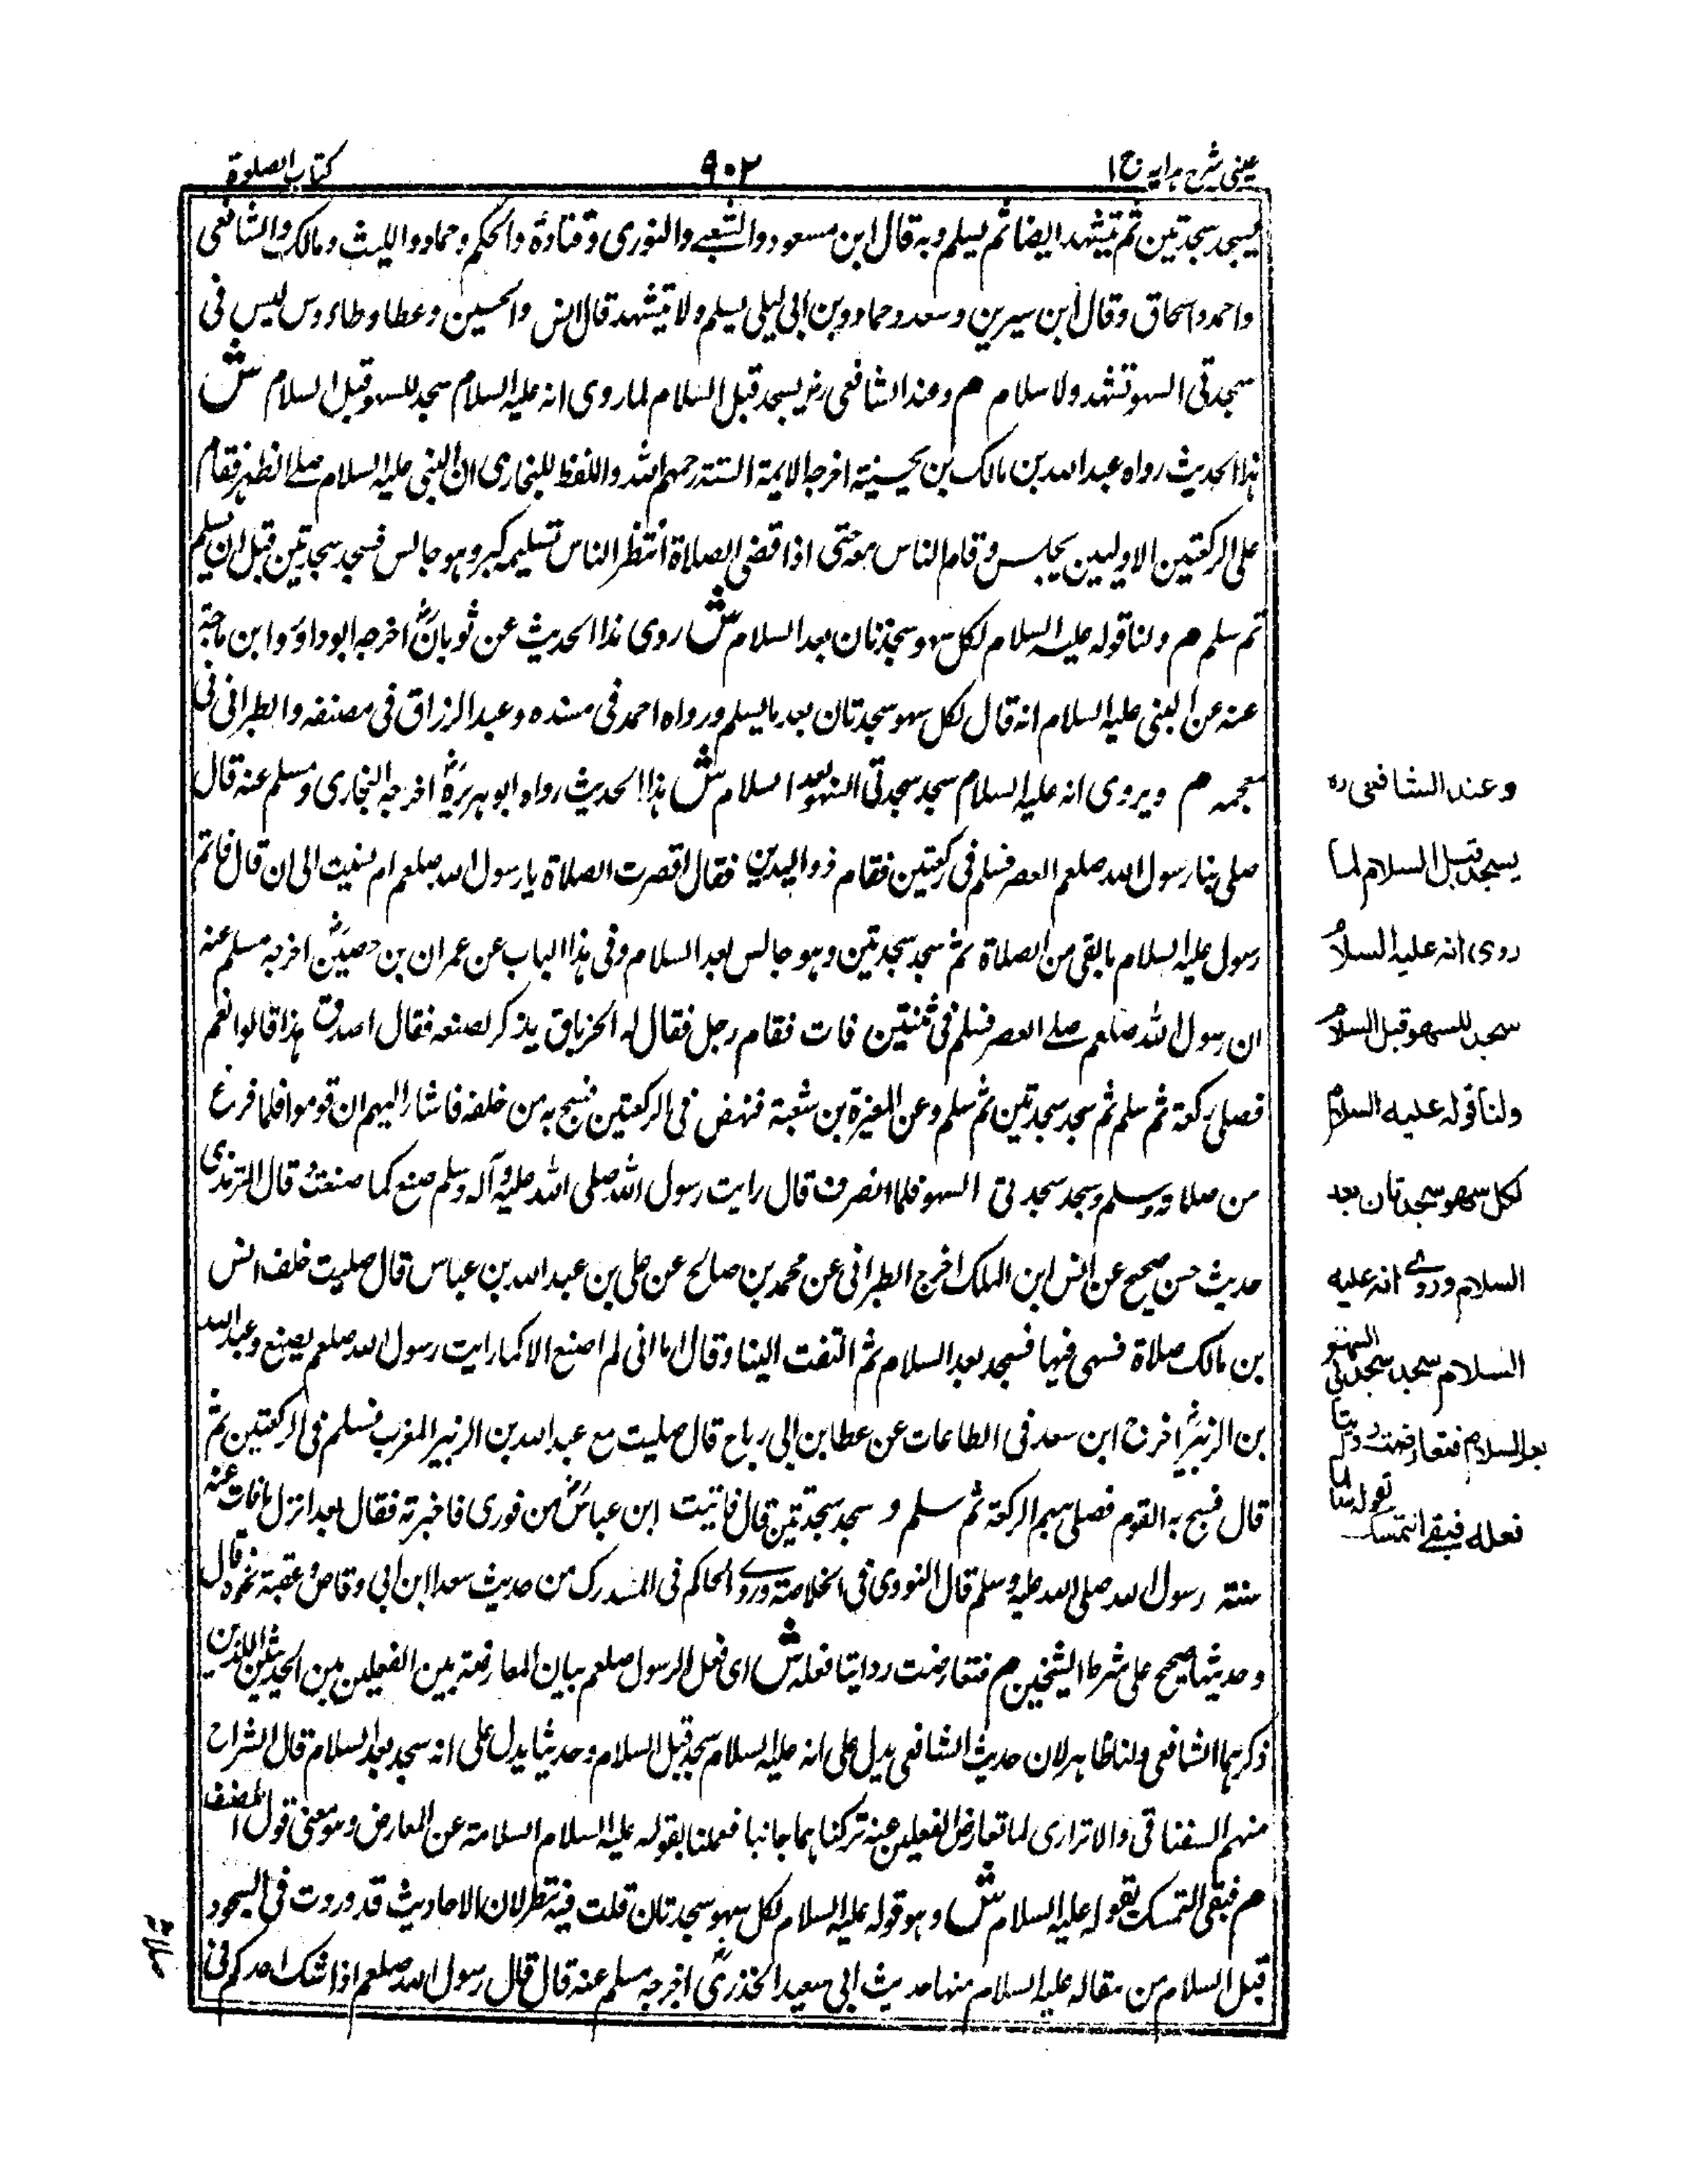 عینی شرح ہدایہ ج ۱
۹۰۲
کتاب الصلوة
فیسجد سجدتین ثم یتشهد ایضا ثم یسلم وبه قال ابن مسعود والشعبے والثوری وقتادة والحکم وحماد واللیث ومالک والشافعی
واحمد واسحاق وقال ابن سیرین وسعد وحماد وبن ابی لیلی یسلم ولا یتشهد قال انس والحسین وعطا وطاءوس لیس فی
سجدتی السهو تشهد ولا سلام م وعند الشافعی رض یسجد قبل السلام لما روی انه علیه السلام سجد للسهو قبل السلام ش
هذا الحدیث رواه عبد الله بن مالک بن بحینة اخرجه الایمة الستة رحمهم الله واللفظ للبخاری ان النبی علیه السلام صلے الظهر فقام
علی الرکعتین الاولیین یجلس وقام الناس معه حتی اذا قضی الصلاة انتظر الناس تسلیمه کبر وهو جالس فسجد سجدتین قبل ان یسلم
ثم سلم م ولنا قوله علیه السلام لکل سهو سجدتان بعد السلام ش روی هذا الحدیث عن ثوبان اخرجه ابو داود وابن ماجة
عنه عن النبی علیه السلام انه قال لکل سهو سجدتان بعد ما یسلم ورواه احمد فی مسنده وعبد الرزاق فی مصنفه والطبرانی فی
معجمه م ویروی انه علیه السلام سجد سجدتی السهو بعد السلام ش هذا الحدیث رواه ابو هریرة اخرجه البخاری ومسلم عنه قال
صلی بنا رسول الله صلعم العصر فسلم فی رکعتین فقام ذو الیدین فقال اقصرت الصلاة یا رسول الله صلعم ام نسیت الی ان قال فاتم
رسول علیه السلام ما بقی من الصلاة ثم سجد سجدتین وهو جالس بعد السلام وفی هذا الباب عن عمران بن حصین اخرجه مسلم عنه
ان رسول الله صلعم صلے العصر فسلم فی ثنتین فات فقام رجل فقال له الخرباق یذکر لصنعه فقال اصدق هذا قالوا نعم
فصلی رکعة ثم سلم ثم سجد سجدتین ثم سلم وعن المغیرة بن شعبة فنهض فی الرکعتین فسبح به من خلفه فاشار الیهم ان قوموا فلما فرغ
من صلاته وسلم وسجد سجدتی السهو فلما انصرف قال رایت رسول الله صلی الله علیه وآله وسلم صنع کما صنعت قال الترمذی
حدیث حسن صحیح عن انس ابن الملک اخرج الطبرانی عن محمد بن صالح عن علی بن عبد الله بن عباس قال صلیت خلف انس
بن مالک صلاة فسهی فیها فسجد بعد السلام ثم التفت الینا وقال اما انی لم اصنع الا کما رایت رسول الله صلعم یصنع وعبد الله
بن الزبیر اخرج ابن سعد فی الطاعات عن عطا بن ابی رباح قال صلیت مع عبد الله بن الزبیر المغرب فسلم فی الرکعتین ثم
قال فسبح به القوم فصلی بهم الرکعة ثم سلم و سجد سجدتین قال فاتیت ابن عباس من فوری فاخبرته فقال بعد انزل مافات عنه
سنته رسول الله صلی الله علیه وسلم قال النووی فی الخلاصة وروے الحاکم فی المستدرک من حدیث سعد ابن ابی وقاص وعقبة نحوه قال
وحدیثها صحیح علی شرط الشیخین م فتعارضت روایتا فعله ش ای فعل الرسول صلعم بیان المعارضة بین الفعلین بین الحدیثین اللذین
ذکرهما الشافعی ولنا ظاهر لان حدیث الشافعی یدل علی انه علیه السلام سجد قبل السلام وحدیثنا یدل علی انه سجد بعد السلام قال الشراح
منهم السغناقی والاترازی لما تعارض الفعلین عنه ترکناهما جانبا فعملنا بقوله علیه السلام السلامة عن المعارض وهو معنی قول المصنف
م فبقی التمسک بقوله علیه السلام ش وهو قوله علیه السلام لکل سهو سجدتان قلت فیه نظر لان الاحادیث قد وردت فی السجود
قبل السلام من مقاله علیه السلام منها حدیث ابی سعید الخدری اخرجه مسلم عنه قال قال رسول الله صلعم اذا شک احدکم فی
وعند الشافعی ره
یسجد قبل السلام لما
روی انه علیه السلام
سجد للسهو قبل السلام
ولنا قوله علیه السلام
لکل سهو سجدتان بعد
السلام وروے انه علیه
السلام سجد سجدتی السهو
بعد السلام فتعارضت روایتا
فعله فبقے التمسک بقوله